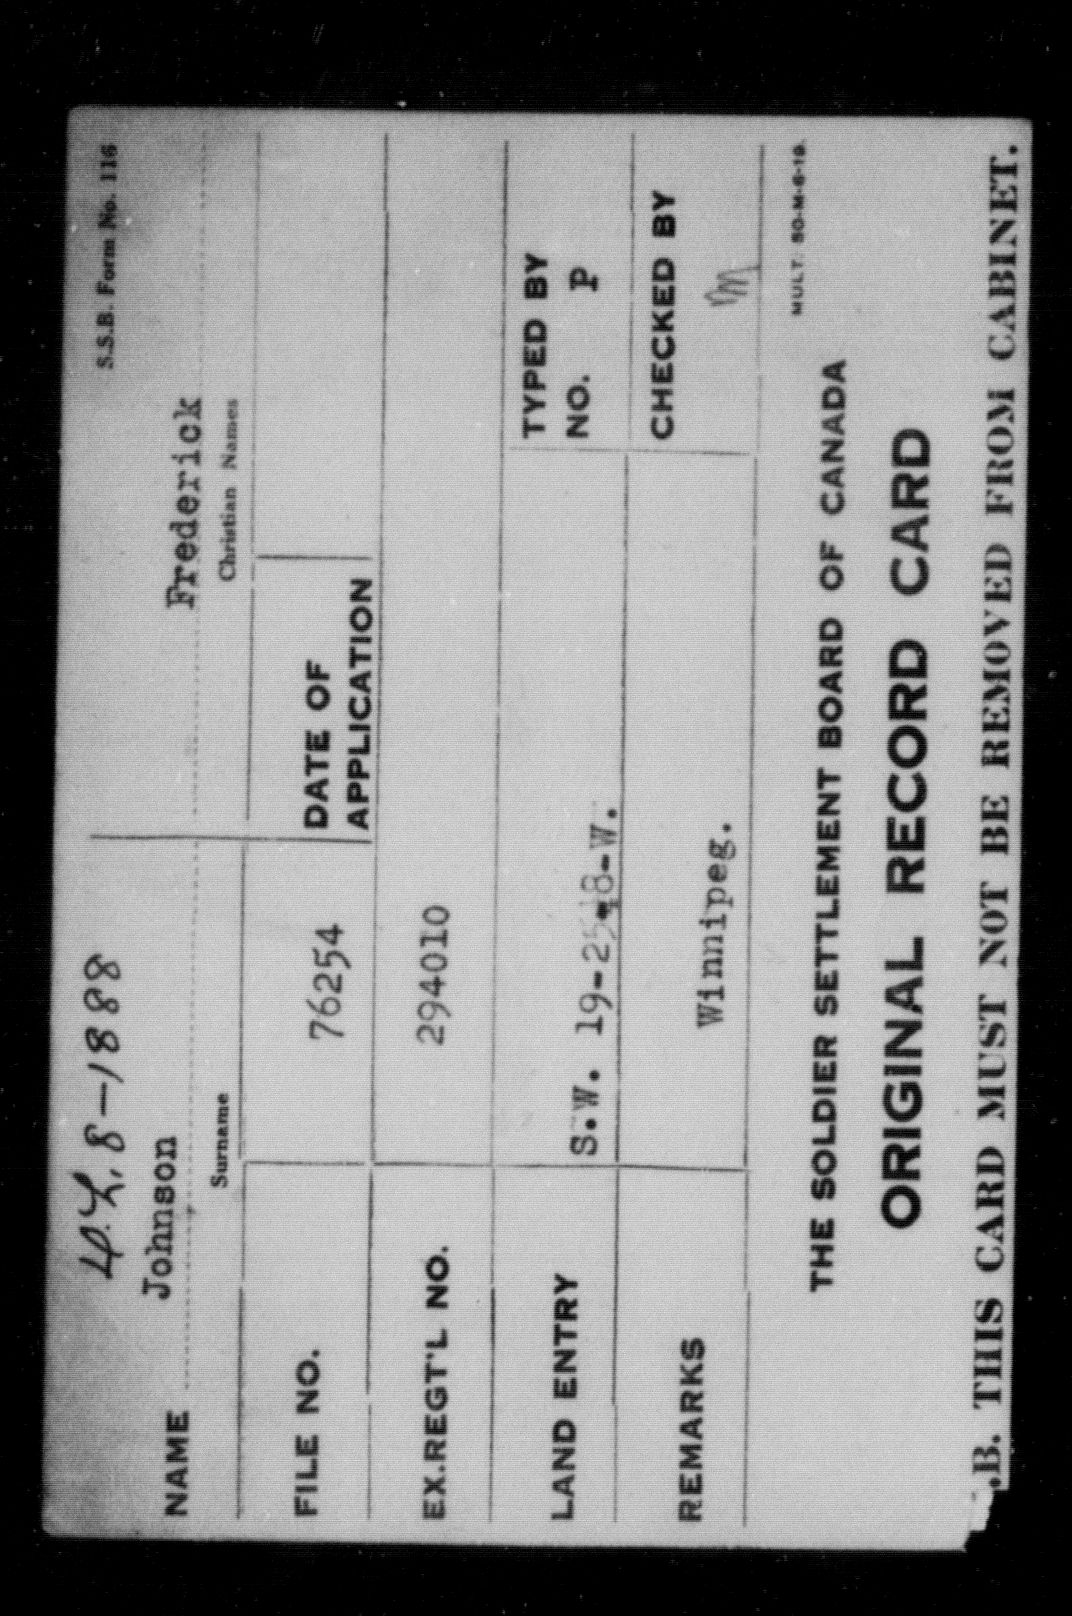 S.S.B. Form No. 116
D.L. 8-1888
NAME Johnson Frederick
Surname Christian Names
FILE NO. 76254 DATE OF APPLICATION
EX.REGT'L NO. 294010
LAND ENTRY S.W. 19-25-18-W. TYPED BY NO. P
REMARKS Winnipeg. CHECKED BY
MULT. 50-M-6-19.
THE SOLDIER SETTLEMENT BOARD OF CANADA
ORIGINAL RECORD CARD
.B. THIS CARD MUST NOT BE REMOVED FROM CABINET.